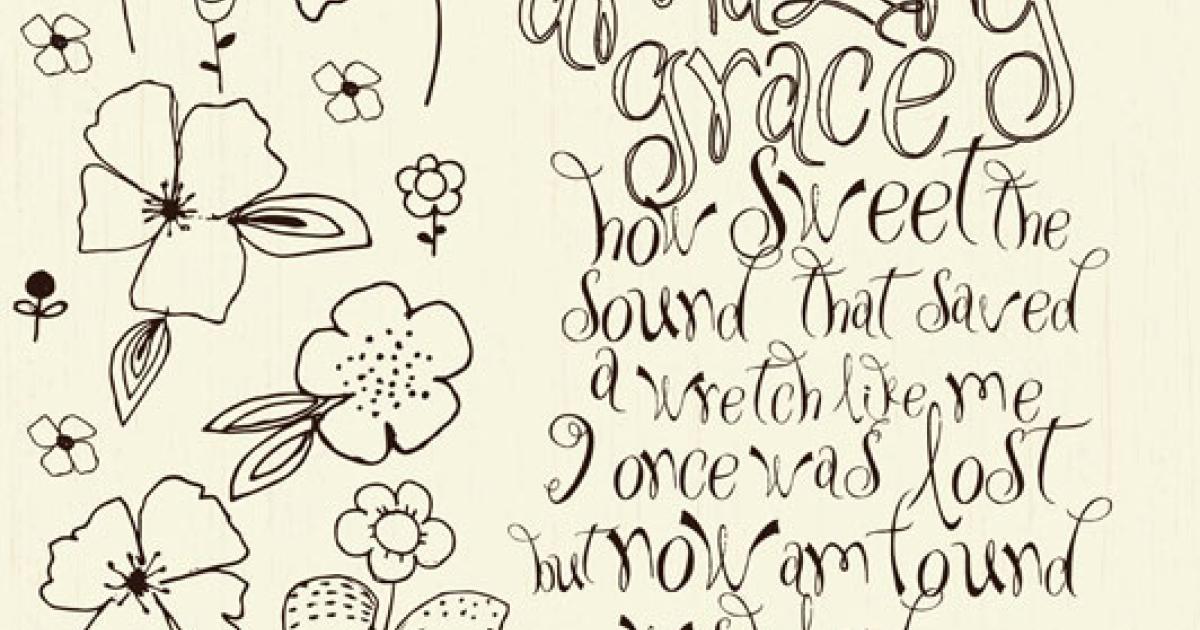 amazing
grace
how sweet the
sound that saved
a wretch like me
I once was lost
but now am found